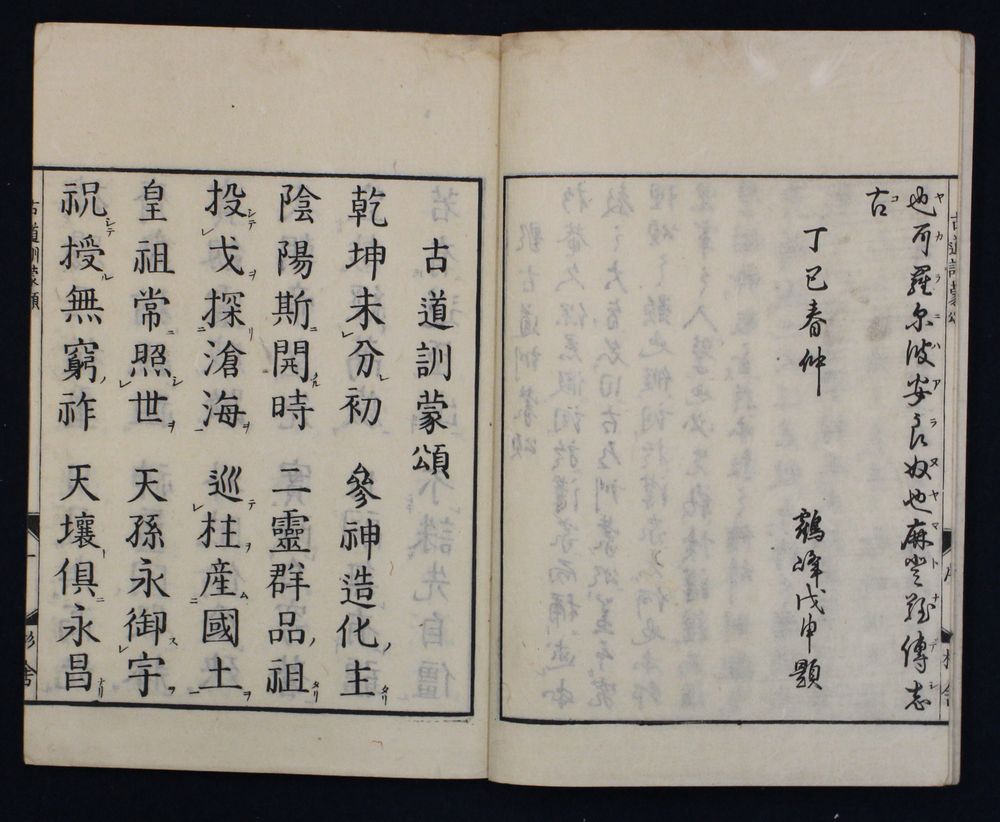 也可羅尓波安良奴也麻登難傳志
古
丁巳春仲
鶴峰戊申題
古道訓蒙頌
乾坤未分初 參神造化主
陰陽斯開時 二靈群品祖
投戈探滄海 巡柱産國土
皇祖常照世 天孫永御宇
祝授無窮祚 天壤俱永昌
古道訓蒙頌